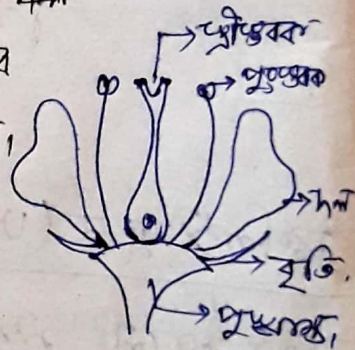 স্ত্রীস্তবক
পুংস্তবক
দল
বৃতি.
পুষ্পাক্ষ,